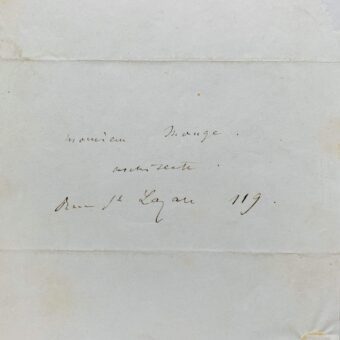 Monsieur Monge.
architecte.
Rue St Lazare 119.